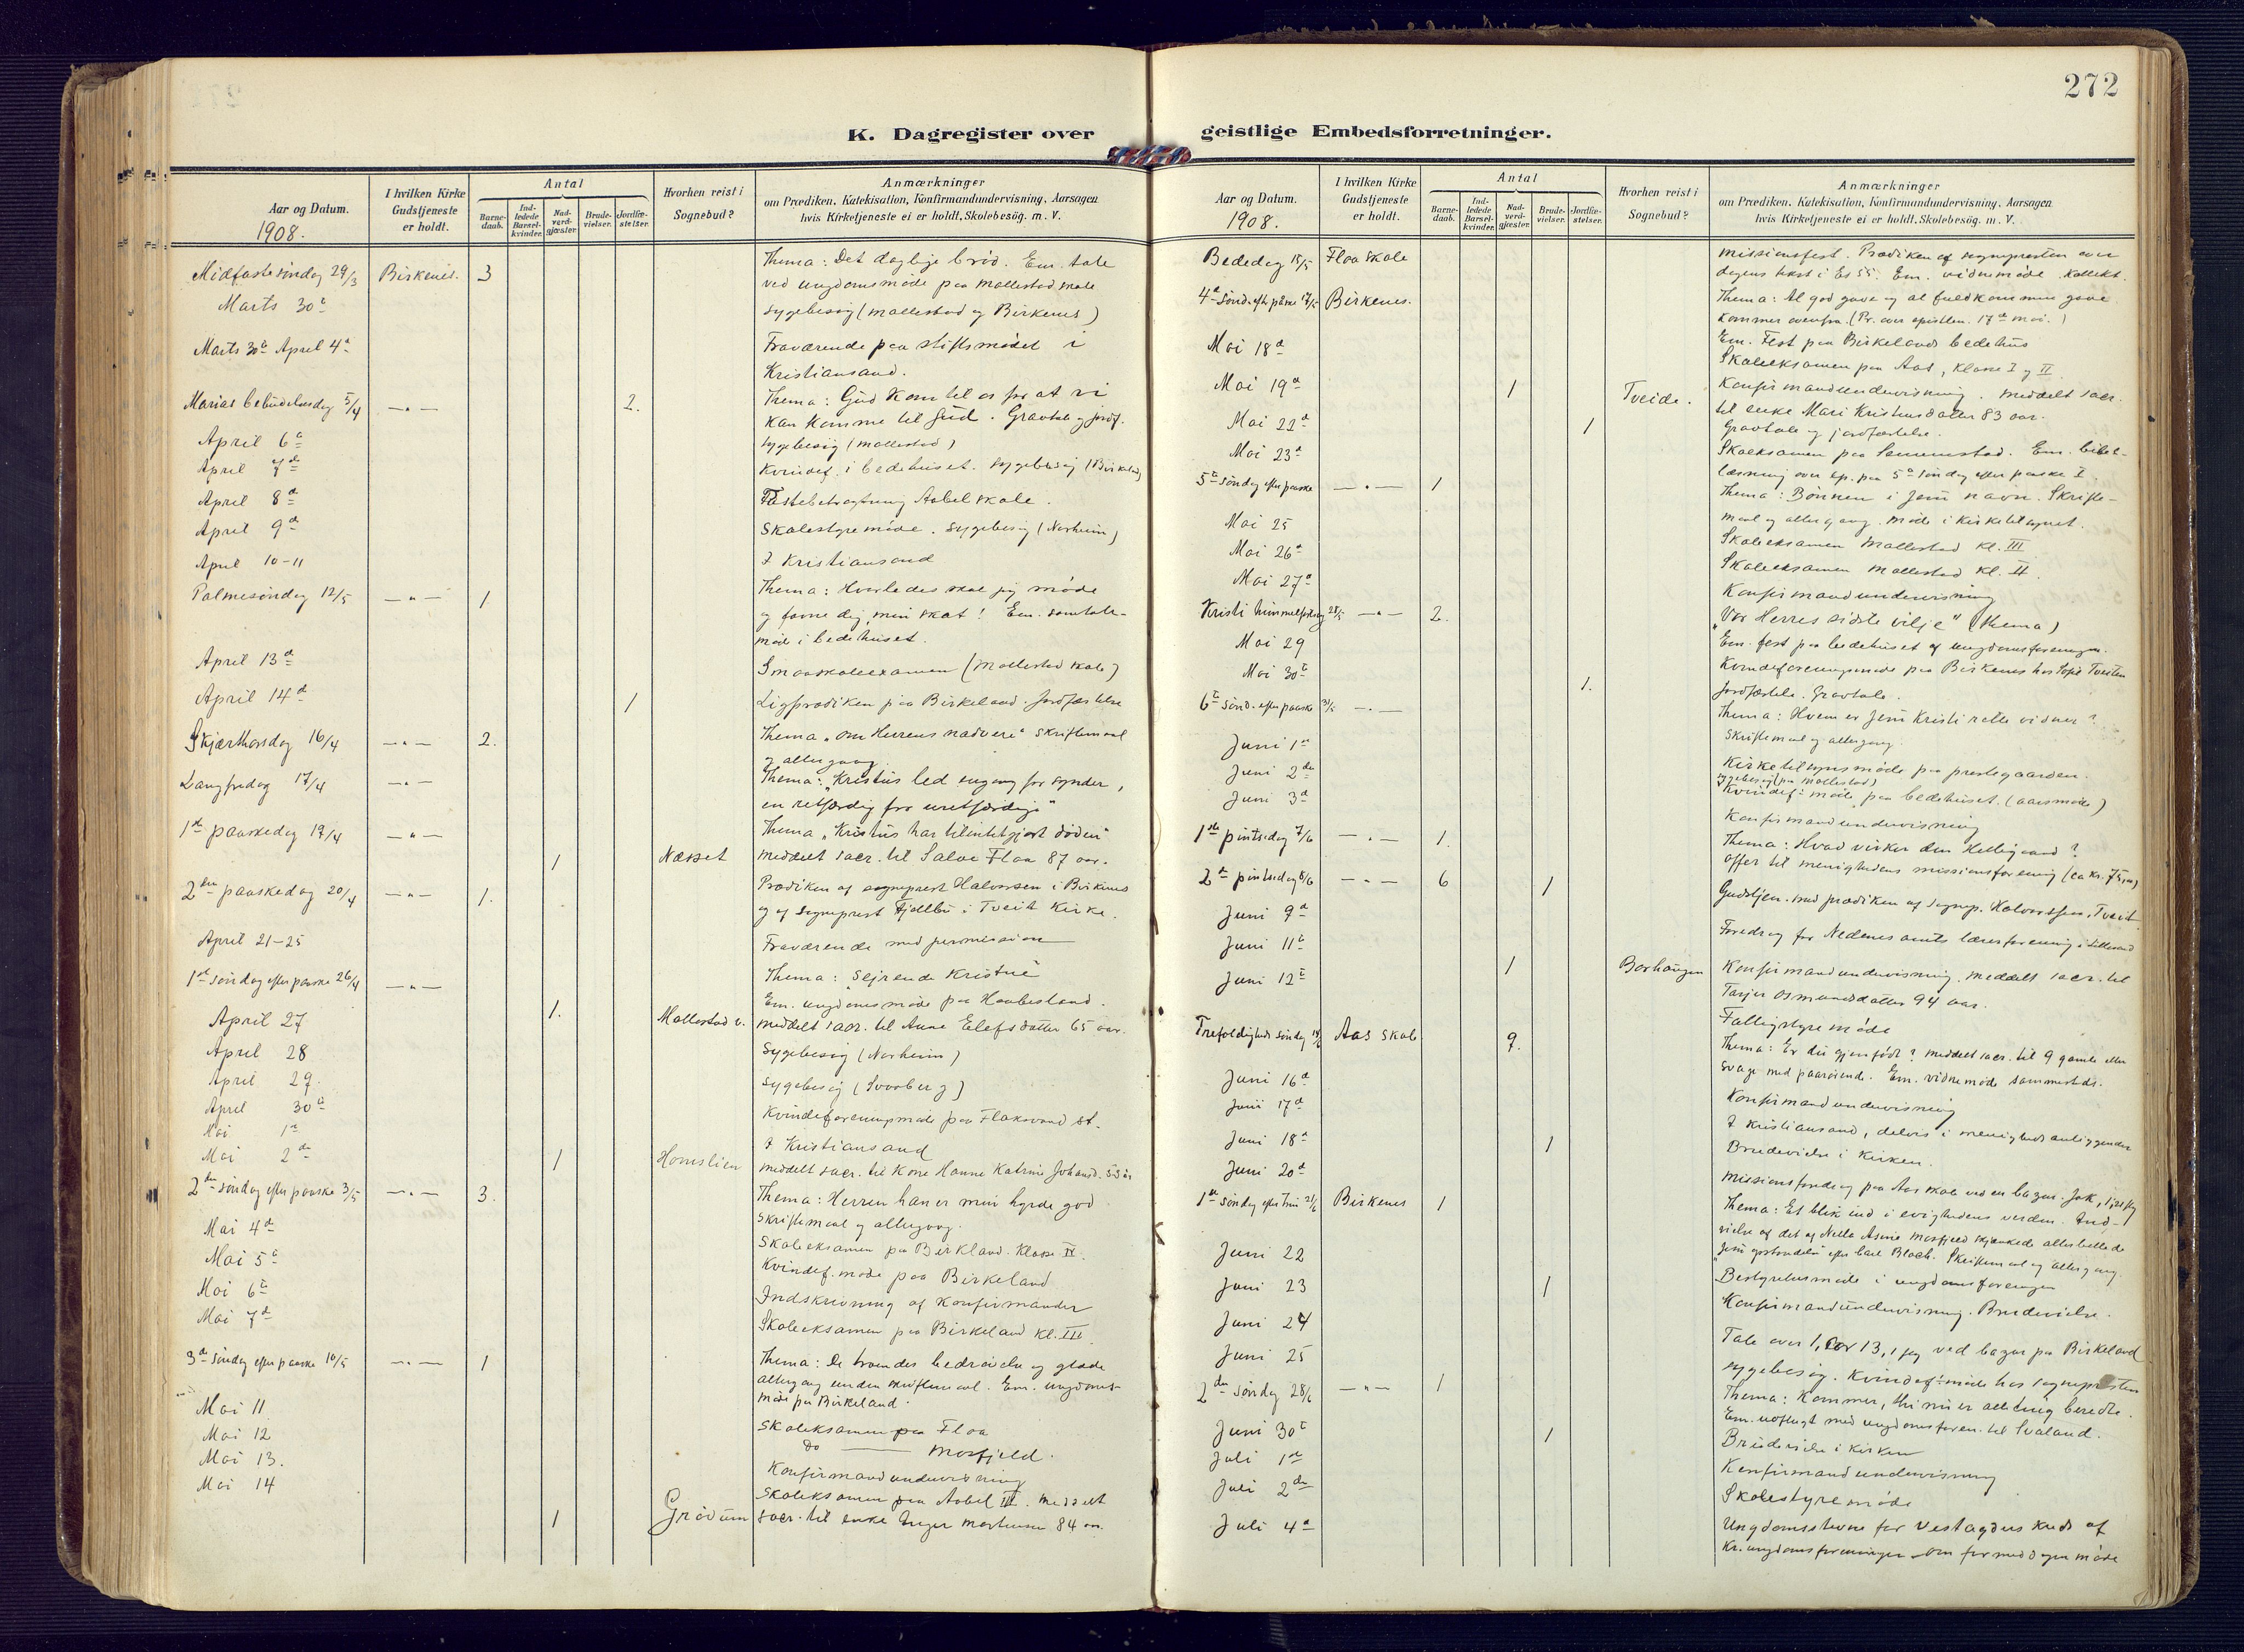 272
K. Dagregister over
geistlige Embedsforretninger.
Aar og Datum.
1908.
I hvilken Kirke Gudstjeneste er holdt.
Antal
Barnedaab.
Indledede Barselkvinder.
Nadverdgjæster.
Brudevielser.
Jordfæstelser.
Hvorhen reist i Sognebud?
Anmærkninger
om Prædiken, Katekisation, Konfirmandundervisning, Aarsagen
hvis Kirketjeneste ei er holdt. Skolebesög. m. V.
Midfastesöndag 29/3 Birkenes. 3 Thema: Det daglige bröd. Em. tale
ved ungdomsmöde paa Mollestad skole
Marts 30te sygebesög (Mollestad og Birkenes)
Marts 30te April 4de Fraværende paa stiftsmödet i
Kristiansand.
Marias bebudelsesdag 5/4 —"— 2. Thema: Gud kom til os for at vi
kan komme til Gud. Gravtale og jordf.
April 6te sygebesög (Mollestad)
April 7de Kvindef. i bedehuset. sygebesög (Birkeland)
April 8de Fastebetragtning Aabel skole.
April 9de Skolestyremöde. sygebesög (Norheim)
April 10-11 I Kristiansand
Palmesöndag 12/5 —"— 1 Thema: Hvorledes skal jeg möde
og favne dig, min skat! Em. samtale-
möde i bedehuset.
April 13de Smaaskoleexamen (Mollestad skole)
April 14de 1 Ligprædiken paa Birkeland. Jordfæstelse
Skjærthorsdag 16/4 —"— 2. Thema "Om Herrens nadvere" Skriftemaal
og altergang.
Langfredag 17/4 —"— Thema: "Kristus led engang for synder,
en retfærdig for uretfærdige"
1ste paaskedag 19/4 —"— Thema "Kristus har tilintetgjort döden"
1 Næset meddelt sacr. til Salve Flaa 87 aar.
2den paaskedag 20/4 —"— 1. Prædiken af sogneprest Halvorsen i Birkenes
og af sogneprest Fjellbu i Tveit Kirke.
April 21-25 Fraværende med permission
1ste söndag efter paaske 26/4 —"— Thema: Sejrende Kristne
Em. ungdomsmöde paa Haabesland.
April 27 1. Mollestad v. meddelt sacr. til Anne Elefsdatter 65 aar.
April 28 Sygebesög (Norheim)
April 29. Sygebesög (Svaaberg)
April 30te Kvindeforeningsmöde paa Flaksvand st.
Mai 1ste I Kristiansand
Mai 2den 1 Homslien meddelt sacr. til Kone Hanne Katrine Johansd. 55 år
2den söndag efter paaske 3/5 —"— 3. Thema: Herren han er min hyrde god
Skriftemaal og altergang.
Mai 4de Skoleeksamen paa Birkland. Klasse II.
Mai 5te Kvindef. möde paa Birkeland
Mai 6te Indskrivning af Konfirmander
Mai 7de Skoleeksamen paa Birkeland kl. III.
3de söndag efter paaske 10/5 —"— 1 Thema: De troendes bedrövelse og glæde
altergang uden skriftemaal. Em. ungdoms-
möde paa Birkeland.
Mai 11 Skoleeksamen paa Flaa
Mai 12 Do —— Mosfjeld.
Mai 13. Konfirmandundervisning
Mai 14 Skoleeksamen paa Aabel III. Meddelt
1 Grödum sacr. til enke Inger Mortensen 84 aar.
Aar og Datum.
1908.
I hvilken Kirke Gudstjeneste er holdt.
Antal
Barnedaab.
Indledede Barselkvinder.
Nadverdgjæster.
Brudevielser.
Jordfæstelser.
Hvorhen reist i Sognebud?
Anmærkninger
om Prædiken, Katekisation, Konfirmandundervisning, Aarsagen
hvis Kirketjeneste ei er holdt. Skolebesög. m. V.
Bededag 15/5 Flaa Skole missionsfest. Prædiken af sognepresten over
dagens tekst i Es 55. Em. vidnemöde. Kollekt.
4de sönd. eft. påske 17/5 Birkenes. Thema: Al god gave og al fuldkommen gave
kommer ovenfra. (Pr. over epistlen. 17de mai.)
Em. Fest paa Birkelands bedehus
Mai 18de Skoleeksamen paa Aas, Klasse I og II
Mai 19de 1 Tveide. Konfirmandundervisning. meddelt sacr.
til enke Mari Kristensdatter 83 aar.
Mai 22de 1 Gravtale og jordfæstelse.
Mai 23de Skoleeksamen paa Senumstad. Em. bibel-
læsning over ep. paa 5te söndag efter paaske I.
5te söndag efter paaske —"— 1 Thema: Bönnen i Jesu navn. Skrifte-
maal og altergang. möde i kirketilsynet.
Mai 25 Skoleeksamen Mollestad kl. III
Mai 26de Skoleeksamen Mollestad kl. II
Mai 27de Konfirmandundervisning
Kristi himmelfartsdag 28/5 —"— 2. "Vor Herres sidste vilje" (thema)
Em. fest paa bedehuset af ungdomsforeningen.
Mai 29 Kvindeforeningsmöde paa Birkenes hos Sofie Tveiten
Mai 30te 1. Jordfæstelse. Gravtale.
6te sönd. efter paaske 31/5 —"— Thema: Hvem er Jesu Kristi rette vidner?
Skriftemaal og altergang.
Juni 1ste Kirketilsynsmöde paa prestegaarden.
Juni 2den sygebesög (paa Mollestad)
Kvindef. möde paa bedehuset. (aarsmöde)
Juni 3de Konfirmandundervisning
1ste pintsedag 7/6 —"— 1. Thema: Hvad virker den Helligaand?
offer til menighedens missionsforening (ca kr. 75,00)
2den pintsedag 8/6 —"— 6 1 Gudstjen. med prædiken af sognep. Halvorssen, Tveit
Juni 9de Foredrag for Nedenes amts lærerforening i Lillesand
Juni 11te
Juni 12te 1 Borhaugen Konfirmandundervisning. meddelt sacr. til
Tarjer Osmundsdatter 94 aar.
Fattigstyremöde
Trefoldigheds söndag 14/6 Aas Skole 9. Thema: Er du gjenfödt? meddelt sacr. til 9 gamle eller
svage med paarörende. Em. vidnemöde sammesteds.
Juni 16de Konfirmandundervisning
Juni 17de I Kristiansand, delvis i menighedsanliggender
Juni 18de 1 Brudevielse i Kirken.
Juni 20de Missionsforedrag paa Aas skole ved en bazar.
1ste söndag efter trin 21/6 Birkenes 1 Thema: Et blik ind i evighedens verden. Ind-
vielse af det af Nella Asine Mosfjeld skjænkede alterbillede
"Jesu opstandelse" efter Carl Bloch. Skriftemaal og altergang.
Juni 22 Bestyrelsesmöde i ungdomsforeningen
Juni 23 1 Konfirmandundervisning. Brudevielse.
Juni 24 Tale over 1, Cor 13, 1 flg ved bazar paa Birkeland
Juni 25 sygebesög. Kvindef. möde hos sognepresten
2den söndag 28/6 —"— 1 Thema: Kommer, thi nu er alting beredt.
Em. udflugt med ungdomsforen. til Svaland.
Juni 30te 1 Brudevielse i kirken
Juli 1ste Konfirmandundervisning
Juli 2den Skolestyremöde
Juli 4de Ungdomsstevne for Vestagders kreds af
Kr. ungdomsforeninger. Om formiddagen möde